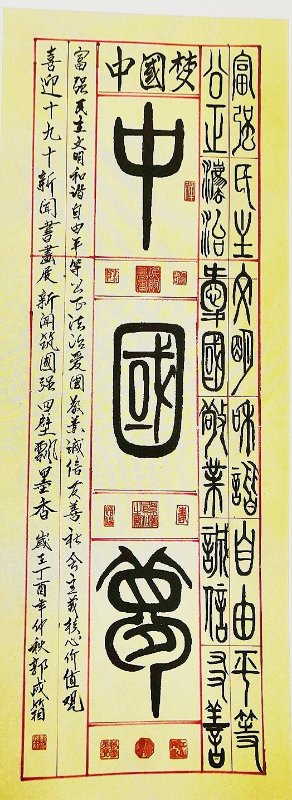 富强民主文明和諧自由平等
公正灋治愛國敬業誠信友善
中國梦
中
國
夢
富强民主文明和谐自由平等公正法治爱国敬業诚信友善社会主義核心价值观
喜迎十九十新闻書畫展新闻筑國强四壁飘墨香歲在丁酉年仲秋郭成箱